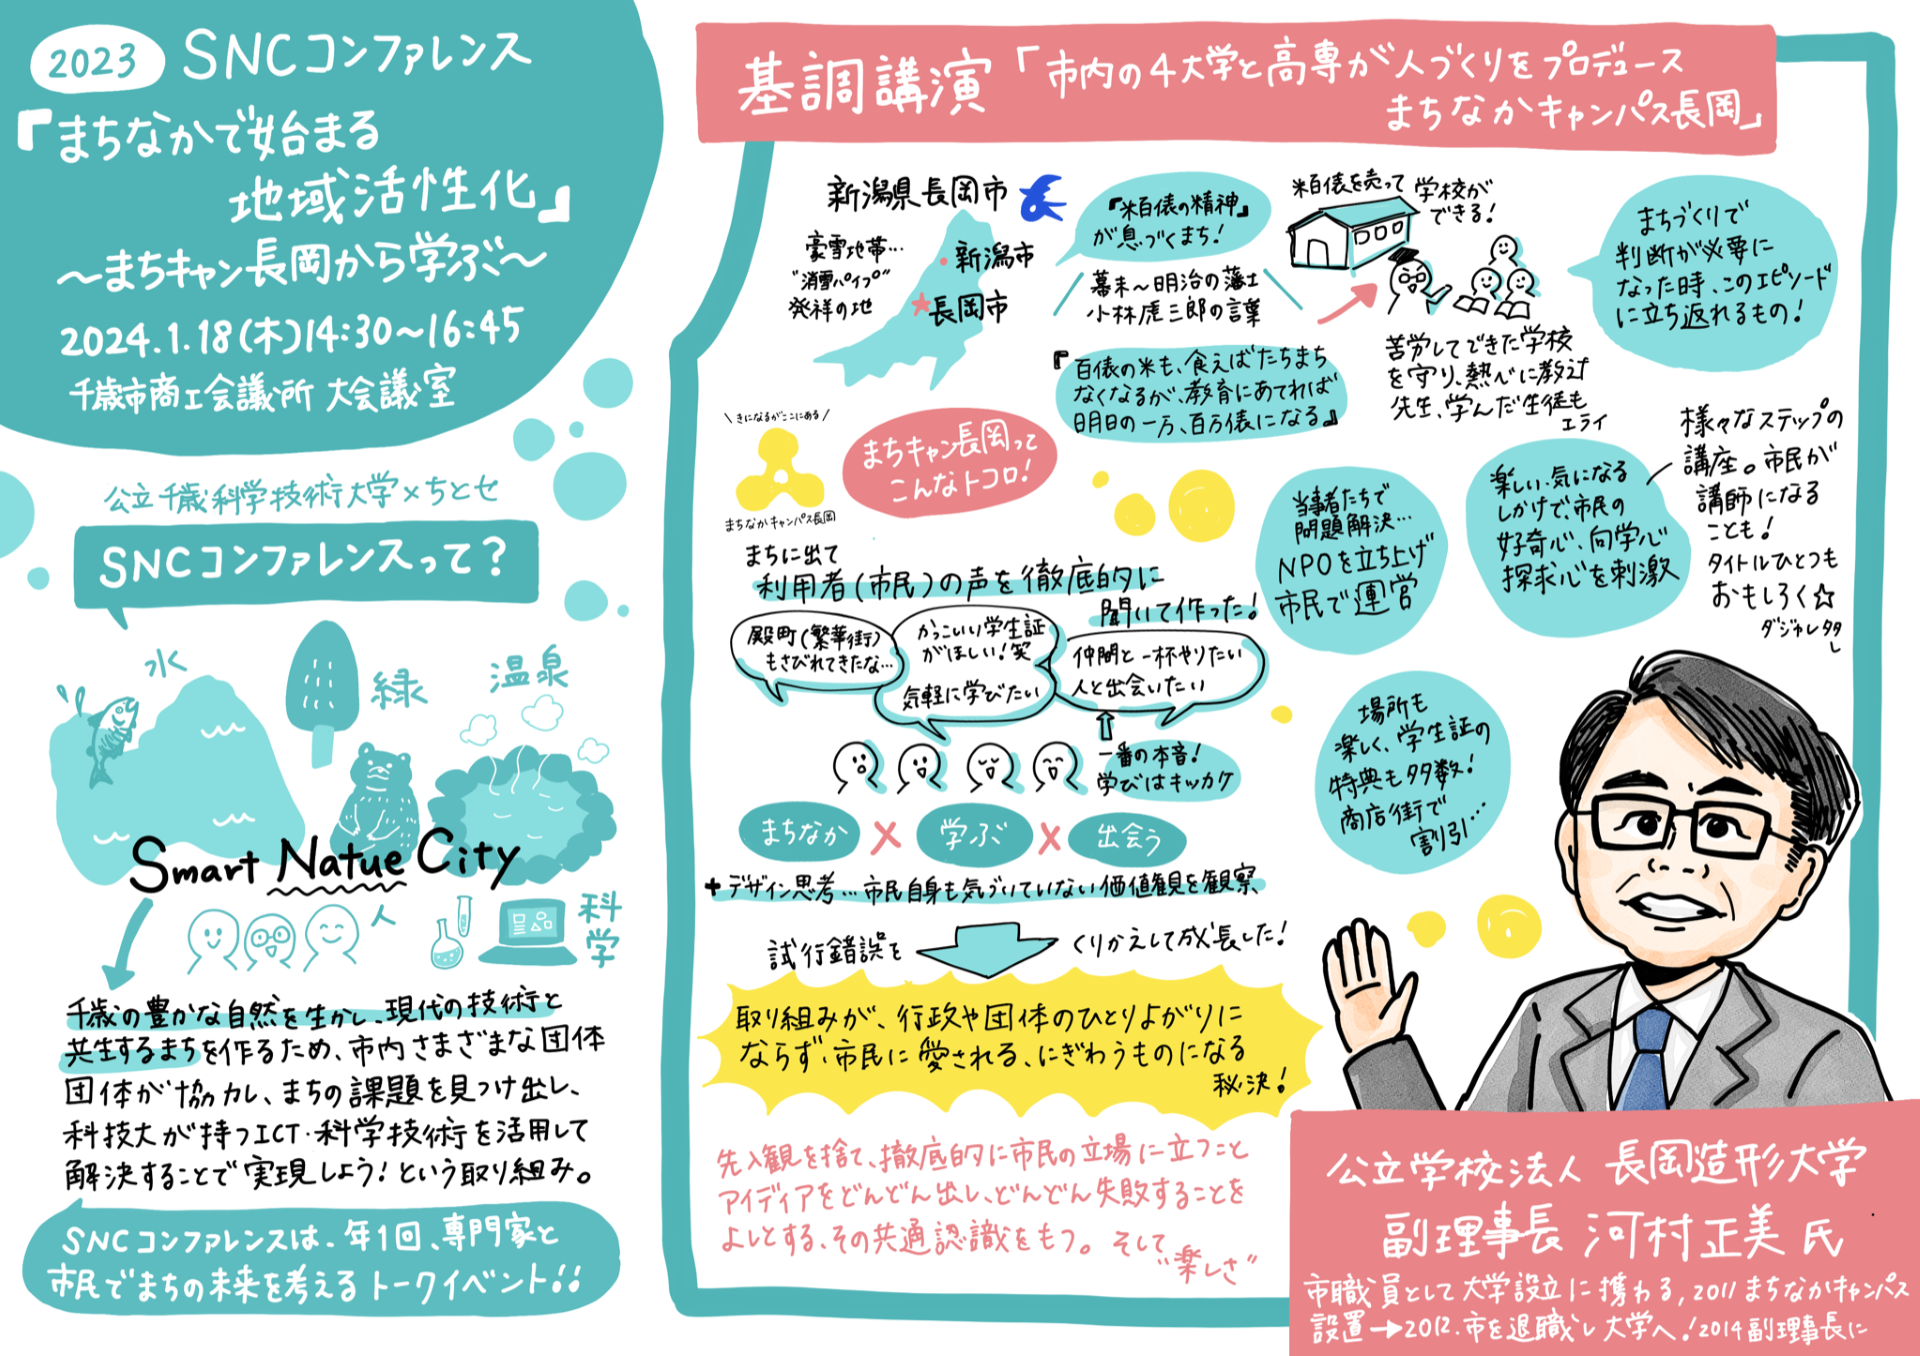 2023 SNCコンファレンス
『まちなかで始まる
地域活性化』
～まちキャン長岡から学ぶ～
2024.1.18(木)14:30～16:45
千歳市商工会議所 大会議室
公立千歳科学技術大学×ちとせ
SNCコンファレンスって?
水
緑
温泉
Smart Natue City
人
科学
千歳の豊かな自然を生かし、現代の技術と
共生するまちを作るため、市内さまざまな団体
団体が協力し、まちの課題を見つけ出し、
科技大が持つICT・科学技術を活用して
解決することで実現しよう!という取り組み。
SNCコンファレンスは、年1回、専門家と
市民でまちの未来を考えるトークイベント!!
基調講演「市内の4大学と高専が人づくりをプロデュース
まちなかキャンパス長岡」
新潟県長岡市
豪雪地帯…
"消雪パイプ"
発祥の地
新潟市
長岡市
『米百俵の精神』
が息づくまち!
幕末～明治の藩士
小林虎三郎の言葉
『百俵の米も、食えばたちまち
なくなるが、教育にあてれば
明日の一万、百万俵になる』
米百俵を売って
学校が
できる!
苦労してできた学校
を守り、熱心に教えた
先生、学んだ生徒も
エライ
まちづくりで
判断が必要に
なった時、このエピソード
に立ち返れるもの!
\きになるがここにある/
まちなかキャンパス長岡
まちキャン長岡って
こんなトコロ!
まちに出て
利用者(市民)の声を徹底的に
聞いて作った!
殿町(繁華街)
もさびれてきたな…
かっこいい学生証
がほしい!笑
気軽に学びたい
仲間と一杯やりたい
人と出会いたい
一番の本音!
学びはキッカケ
まちなか × 学ぶ × 出会う
+デザイン思考…市民自身も気づいていない価値観を観察
試行錯誤を
くりかえして成長した!
取り組みが、行政や団体のひとりよがりに
ならず、市民に愛される、にぎわうものになる
秘決!
先入観を捨て、徹底的に市民の立場に立つこと
アイディアをどんどん出し、どんどん失敗することを
よしとする、その共通認識をもつ。そして
"楽しさ"
当事者たちで
問題解決…
NPOを立ち上げ
市民で運営
楽しい・気になる
しかけで、市民の
好奇心、向学心
探求心を刺激
様々なステップの
講座。市民が
講師になる
ことも!
タイトルひとつも
おもしろく☆
ダジャレタタし
場所も
楽しく、学生証の
特典も多数!
商店街で
割引…
公立学校法人 長岡造形大学
副理事長 河村正美 氏
市職員として大学設立に携わる,2011まちなかキャンパス
設置→2012.市を退職し大学へ!2014副理事長に